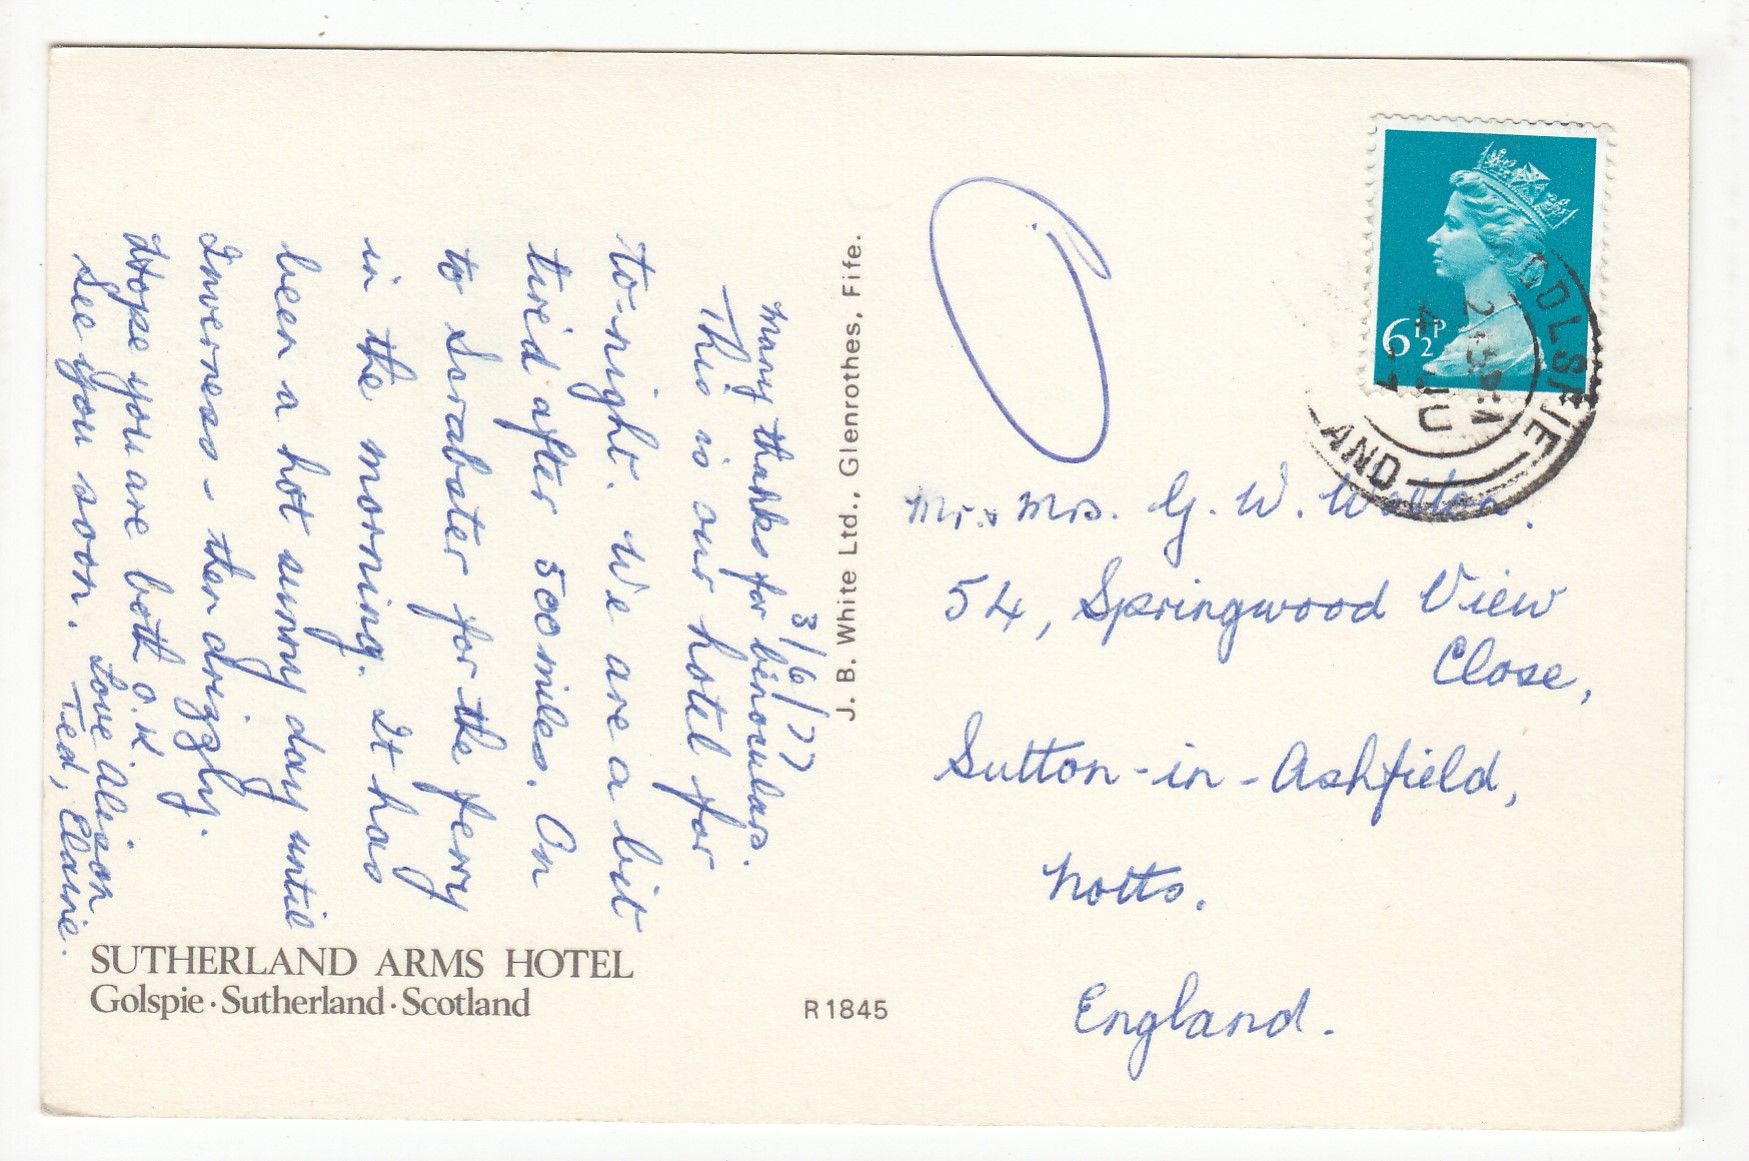 3/6/77
Many thanks for binoculars.
This is our hotel for
to-night. We are a bit
tired after 500 miles. On
to Scrabster for the ferry
in the morning. It has
been a hot sunny day until
Inverness - then drizzly.
Hope you are both O.K
See you soon. Love Alison
Ted, Elaine.
SUTHERLAND ARMS HOTEL
Golspie · Sutherland · Scotland
J. B. White Ltd., Glenrothes, Fife.
R1845
6½P
GOLSPIE
2 15 PM
4 JU
AND
Mr. & Mrs. G. W. Walton.
54, Springwood View
Close,
Sutton-in-Ashfield,
Notts.
England.